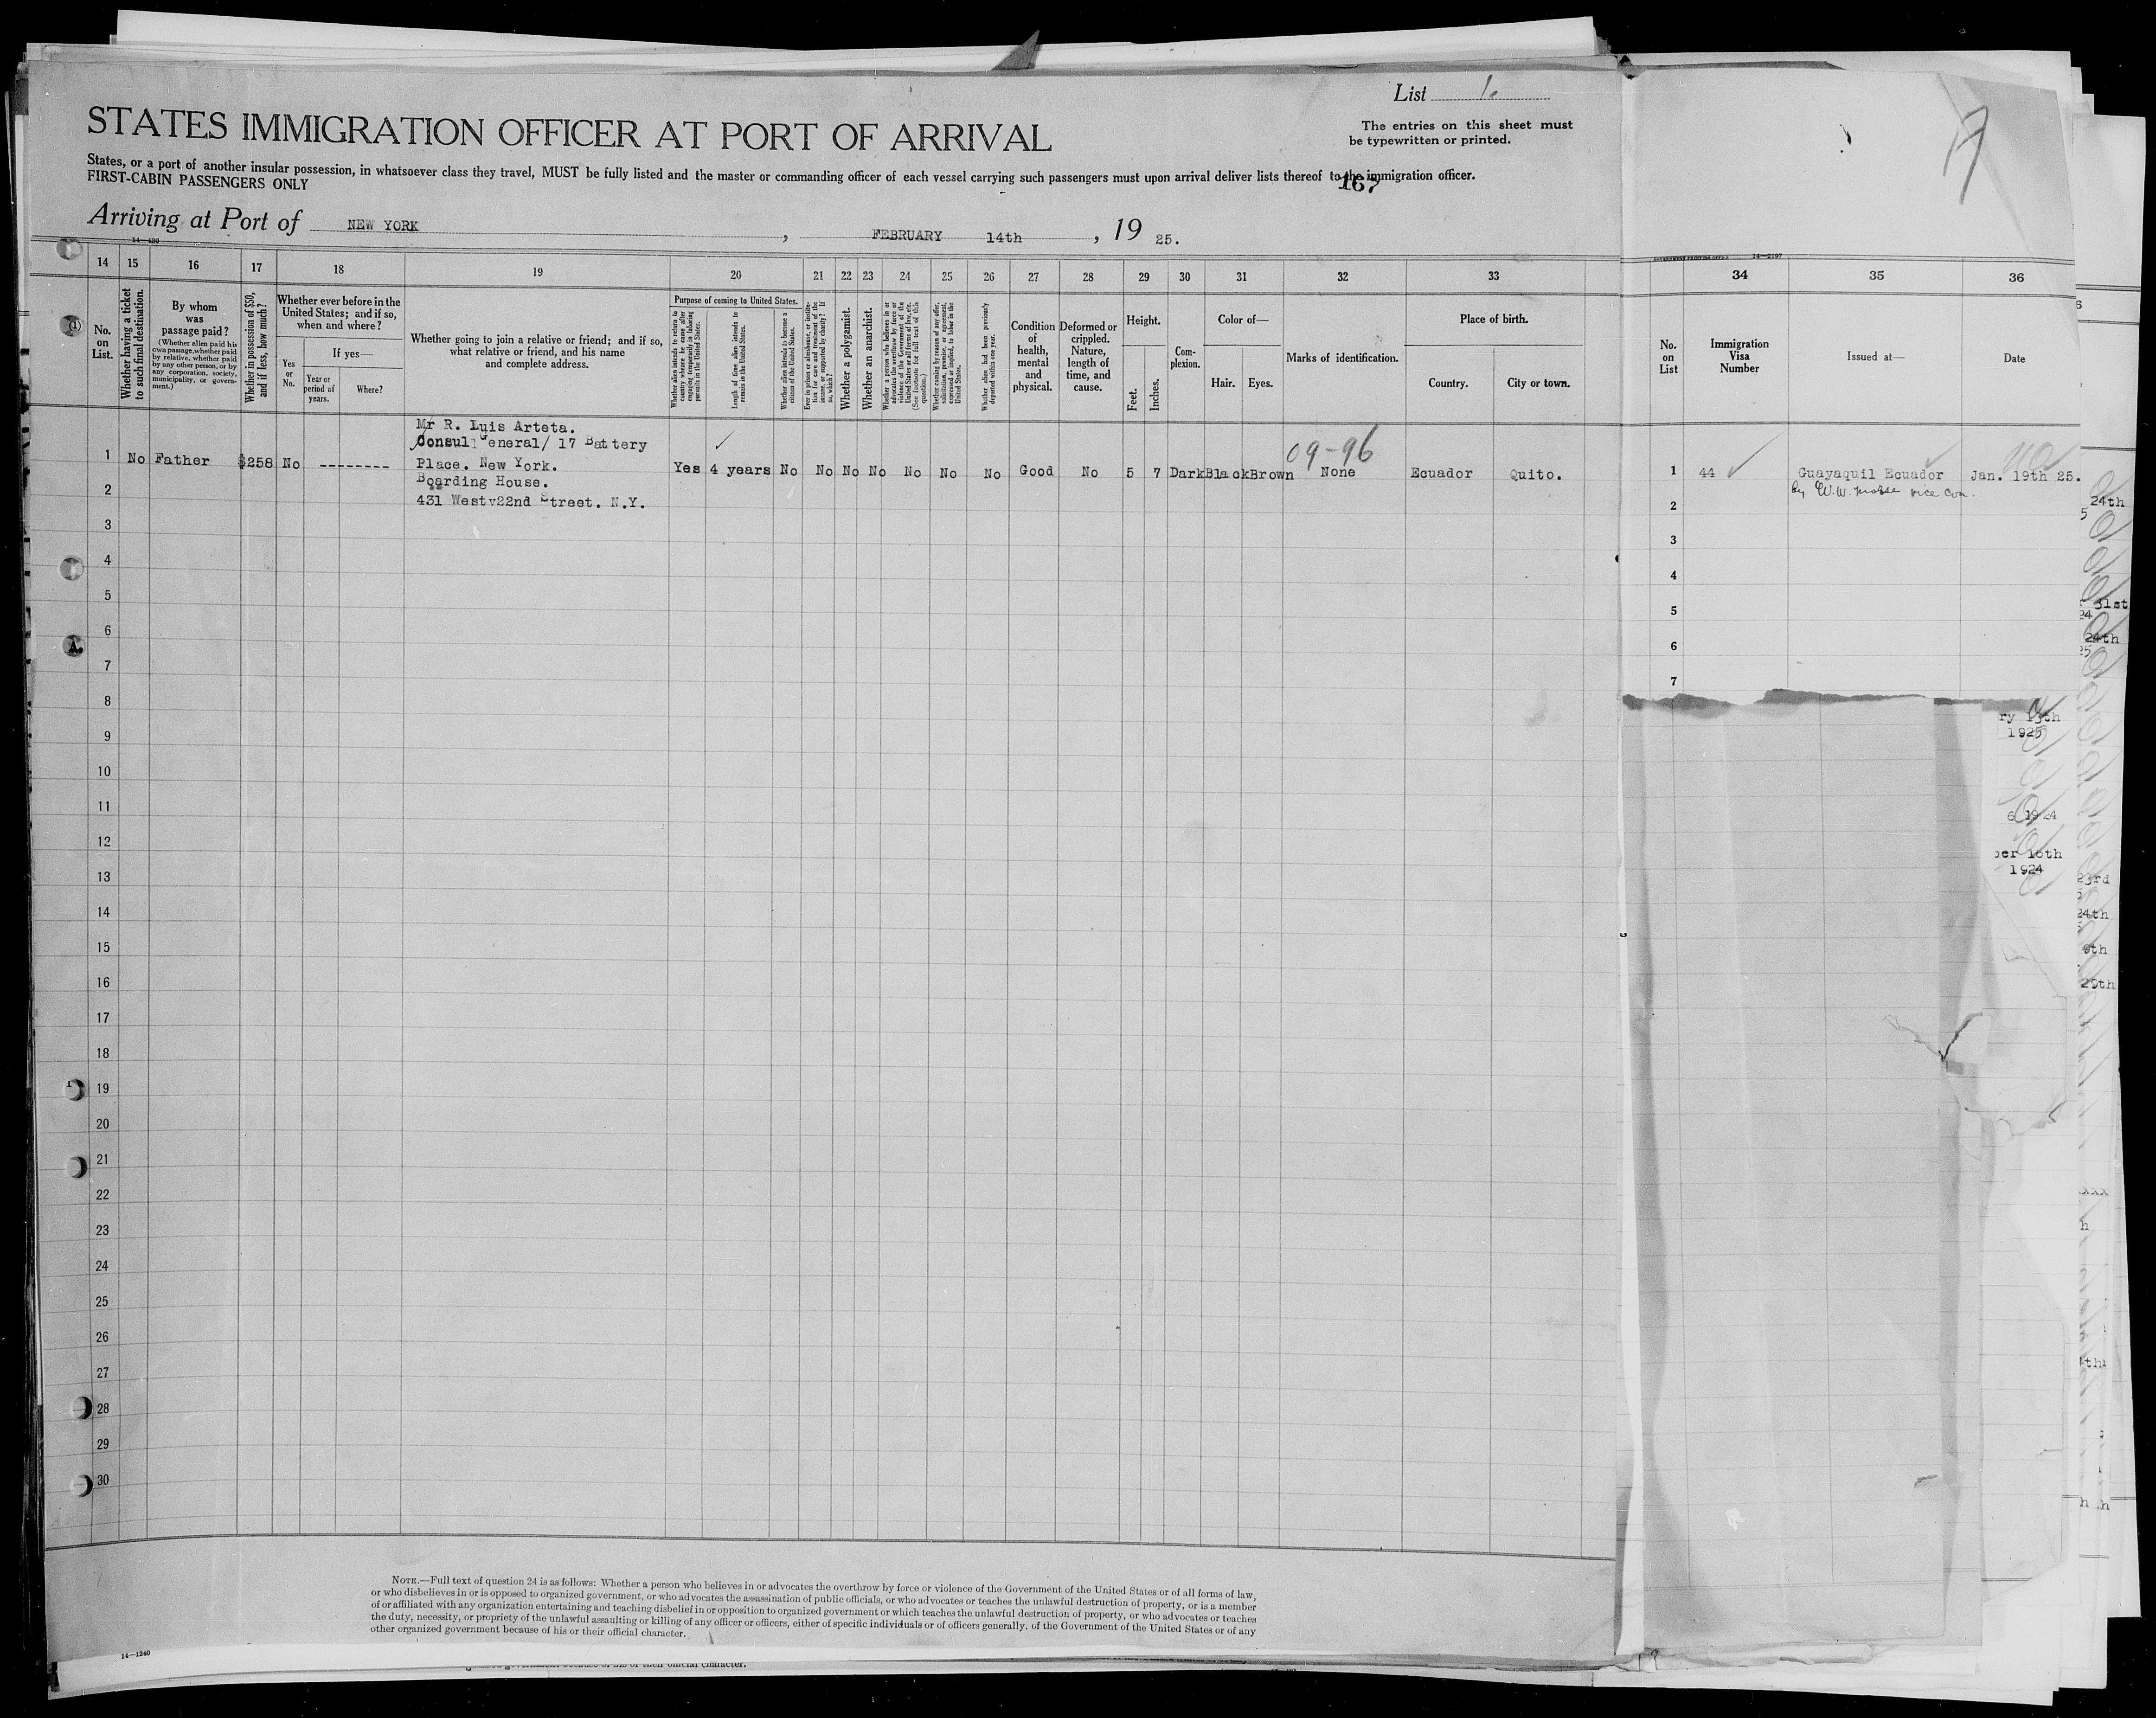 List 1.
STATES IMMIGRATION OFFICER AT PORT OF ARRIVAL
The entries on this sheet must
be typewritten or printed.
States, or a port of another insular possession, in whatsoever class they travel, MUST be fully listed and the master or commanding officer of each vessel carrying such passengers must upon arrival deliver lists thereof to the immigration officer.
167
FIRST-CABIN PASSENGERS ONLY
Arriving at Port of NEW YORK , FEBRUARY 14th , 19 25.
14—430
14—2197
14 15 16 17 18 19 20 21 22 23 24 25 26 27 28 29 30 31 32 33 34 35 36
No. on List.
Whether having a ticket to such final destination.
By whom was passage paid?
(Whether alien paid his own passage, whether paid by relative, whether paid by any other person, or by any corporation, society, municipality, or government.)
Whether in possession of $50, and if less, how much?
Whether ever before in the United States; and if so, when and where?
Yes or No.
If yes—
Year or period of years.
Where?
Whether going to join a relative or friend; and if so, what relative or friend, and his name and complete address.
Purpose of coming to United States.
Whether alien intends to return to country whence he came after engaging temporarily in laboring pursuits in the United States.
Length of time alien intends to remain in the United States.
Whether alien intends to become a citizen of the United States.
Ever in prison or almshouse, or institution for care and treatment of the insane, or supported by charity? If so, which?
Whether a polygamist.
Whether an anarchist.
Whether a person who believes in or advocates the overthrow by force or violence of the Government of the United States or all forms of law, etc. (See footnote for full text of this question.)
Whether coming by reason of any offer, solicitation, promise, or agreement, expressed or implied, to labor in the United States.
Whether alien had been previously deported within one year.
Condition of health, mental and physical.
Deformed or crippled. Nature, length of time, and cause.
Height.
Feet. Inches.
Complexion.
Color of—
Hair. Eyes.
Marks of identification.
Place of birth.
Country. City or town.
No. on List
Immigration Visa Number
Issued at—
Date
Mr R. Luis Arteta.
Consul General/ 17 Battery
09-96
1 No Father $258 No -------- Place. New York. Yes 4 years No No No No No No No Good No 5 7 Dark Black Brown None Ecuador Quito. 1 44 Guayaquil Ecuador Jan. 19th 25.
Boarding House.
By W.W. Morse vice con.
2 431 Westv22nd Street. N.Y. 2
24th
3 3
4 4
5 5
31st
6 6
24th
7 7
8
ry 13th
1925
9
10
11
6 1924
12
ber 16th
1924
13
23rd
14
24th
15
9th
16
20th
17
18
19
20
21
22
23
24
25
26
27
28
29
30
NOTE.—Full text of question 24 is as follows: Whether a person who believes in or advocates the overthrow by force or violence of the Government of the United States or of all forms of law,
or who disbelieves in or is opposed to organized government, or who advocates the assassination of public officials, or who advocates or teaches the unlawful destruction of property, or is a member
of or affiliated with any organization entertaining and teaching disbelief in or opposition to organized government or which teaches the unlawful destruction of property, or who advocates or teaches
the duty, necessity, or propriety of the unlawful assaulting or killing of any officer or officers, either of specific individuals or of officers generally, of the Government of the United States or of any
other organized government because of his or their official character.
14—1240